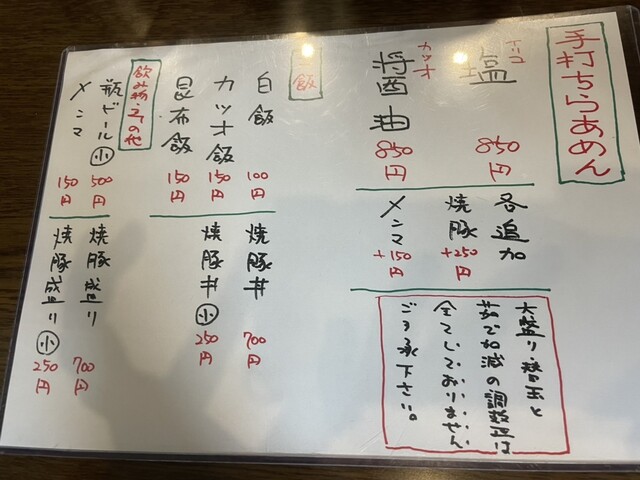 手打ちらあめん
塩
850円
カツオ
醤油
850円
各追加
焼豚
+250円
メンマ
+150円
大盛り・替玉と
茹で加減の調整は
全てしておりません
ご了承下さい。
飯
白飯
100円
カツオ飯
150円
昆布飯
150円
焼豚丼
700円
焼豚丼小
250円
飲み物・その他
瓶ビール小
500円
メンマ
150円
焼豚盛り
700円
焼豚盛り小
250円